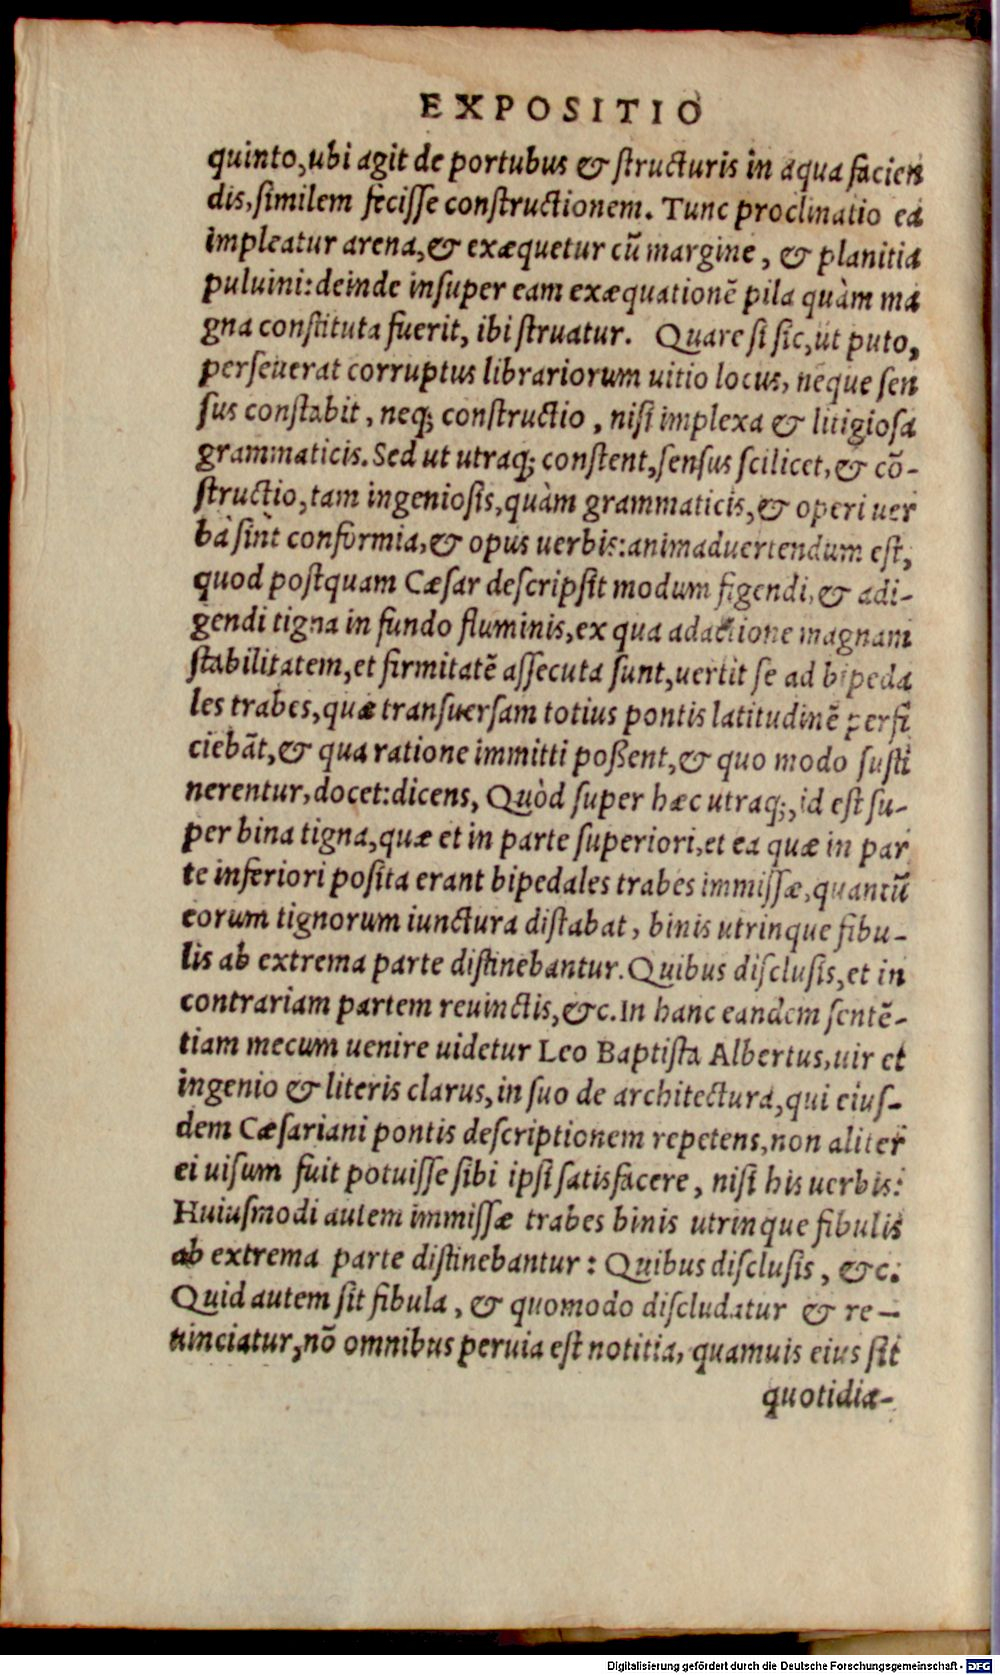 EXPOSITIO
quinto, ubi agit de portubus & structuris in aqua facien
dis, similem fecisse constructionem. Tunc proclinatio ea
impleatur arena, & exæquetur cũ margine, & planitia
puluini: deinde insuper eam exæquationẽ pila quàm ma
gna constituta fuerit, ibi struatur. Quare si sic, ut puto,
perseuerat corruptus librariorum uitio locus, neque sen
sus constabit, neq; constructio, nisi implexa & litigiosa
grammaticis. Sed ut utraq; constent, sensus scilicet, & cõ-
structio, tam ingeniosis, quàm grammaticis, & operi uer
ba sint conformia, & opus uerbis: animaduertendum est,
quod postquam Cæsar descripsit modum figendi, & adi-
gendi tigna in fundo fluminis, ex qua adactione magnam
stabilitatem, et firmitatẽ assecuta sunt, uertit se ad bipeda
les trabes, quæ transuersam totius pontis latitudinẽ perfi
ciebãt, & qua ratione immitti poßent, & quo modo susti
nerentur, docet: dicens, Quòd super hæc utraq;, id est su-
per bina tigna, quæ et in parte superiori, et ea quæ in par
te inferiori posita erant bipedales trabes immissæ, quantũ
eorum tignorum iunctura distabat, binis utrinque fibu-
lis ab extrema parte distinebantur. Quibus disclusis, et in
contrariam partem reuinctis, &c. In hanc eandem sentẽ-
tiam mecum uenire uidetur Leo Baptista Albertus, uir et
ingenio & literis clarus, in suo de architectura, qui eius-
dem Cæsariani pontis descriptionem repetens, non aliter
ei uisum fuit potuisse sibi ipsi satisfacere, nisi his uerbis:
Huiusmodi autem immissæ trabes binis utrinque fibulis
ab extrema parte distinebantur: Quibus disclusis, &c.
Quid autem sit fibula, & quomodo discludatur & re-
uinciatur, nõ omnibus peruia est notitia, quamuis eius sit
quotidia-
Digitalisierung gefördert durch die Deutsche Forschungsgemeinschaft - DFG